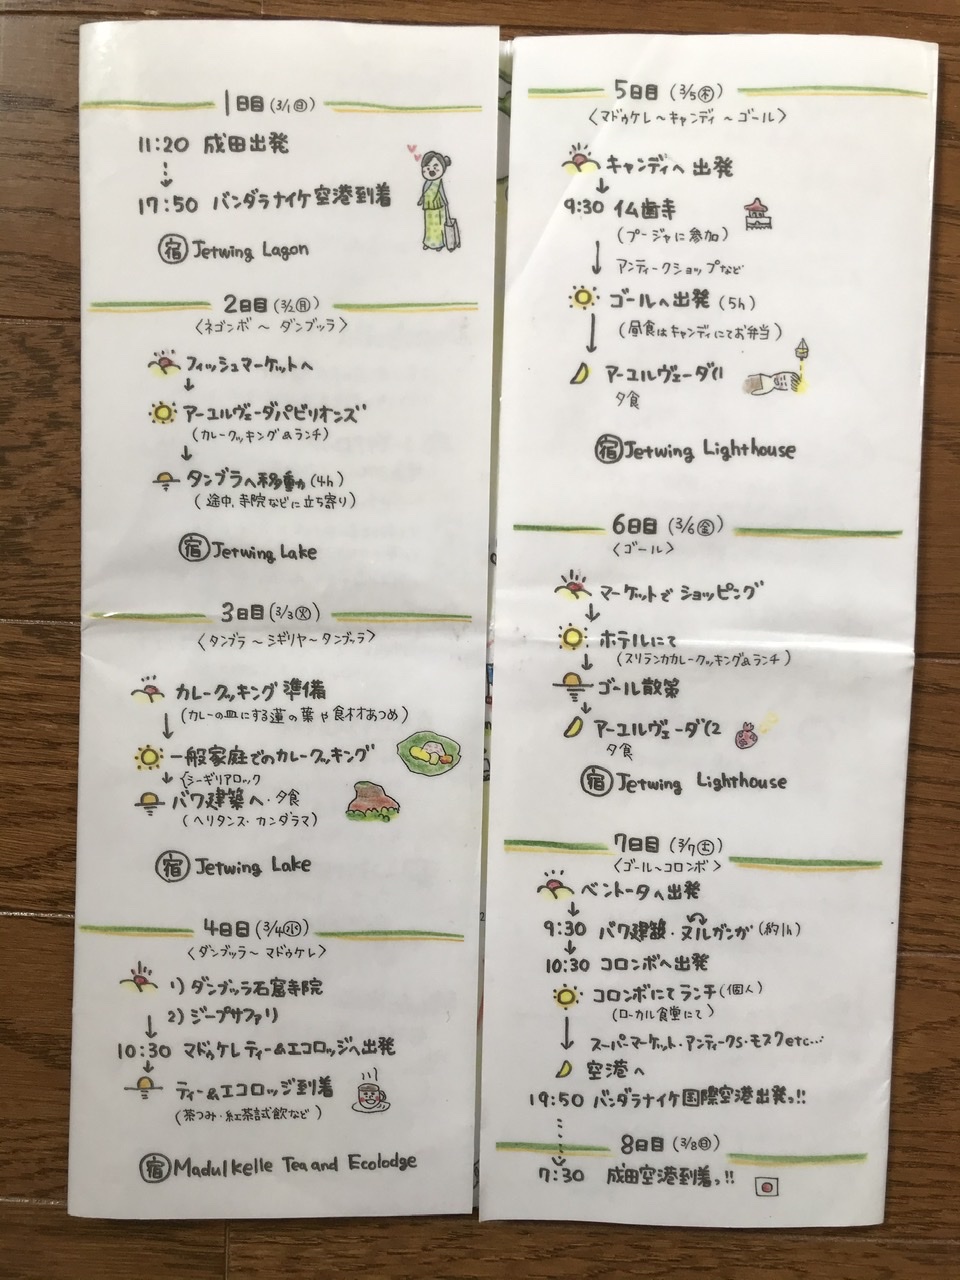 1日目(3/1㊐)
11:20 成田出発
17:50 バンダラナイケ空港到着
宿 Jetwing Lagon
2日目(3/2㊊)
〈ネゴンボ〜ダンブッラ〉
フィッシュマーケットへ
アーユルヴェーダパビリオンズ
(カレークッキング&ランチ)
タンブラへ移動(4h)
(途中、寺院などに立ち寄り)
宿 Jetwing Lake
3日目(3/3㊋)
〈タンブラ〜シギリヤ〜タンブッラ〉
カレークッキング準備
(カレーの皿にする蓮の葉や食材あつめ)
一般家庭でのカレークッキング
シーギリアロック
バワ建築へ・夕食
(ヘリタンス・カンダラマ)
宿 Jetwing Lake
4日目(3/4㊌)
〈ダンブッラ〜マドゥケレ〉
1)ダンブッラ石窟寺院
2)ジープサファリ
10:30 マドゥケレティー&エコロッジへ出発
ティー&エコロッジ到着
(茶つみ・紅茶試飲など)
宿 Madulkelle Tea and Ecolodge
5日目(3/5㊍)
〈マドゥケレ〜キャンディ〜ゴール〉
キャンディへ出発
9:30 仏歯寺
(プージャに参加)
アンティークショップなど
ゴールへ出発(5h)
(昼食はキャンディにてお弁当)
アーユルヴェーダ(1
夕食
宿 Jetwing Lighthouse
6日目(3/6㊎)
〈ゴール〉
マーケットでショッピング
ホテルにて
(スリランカカレークッキング&ランチ)
ゴール散策
アーユルヴェーダ(2
夕食
宿 Jetwing Lighthouse
7日目(3/7㊏)
〈ゴール〜コロンボ〉
ベントータへ出発
9:30 バワ建築・ヌルガンガ(約1h)
10:30 コロンボへ出発
コロンボにてランチ(個人)
(ローカル食堂にて)
スーパーマーケット・アンティークS・モスクetc...
空港へ
19:50 バンダラナイケ国際空港出発っ!!
8日目(3/8㊐)
7:30 成田空港到着っ!!